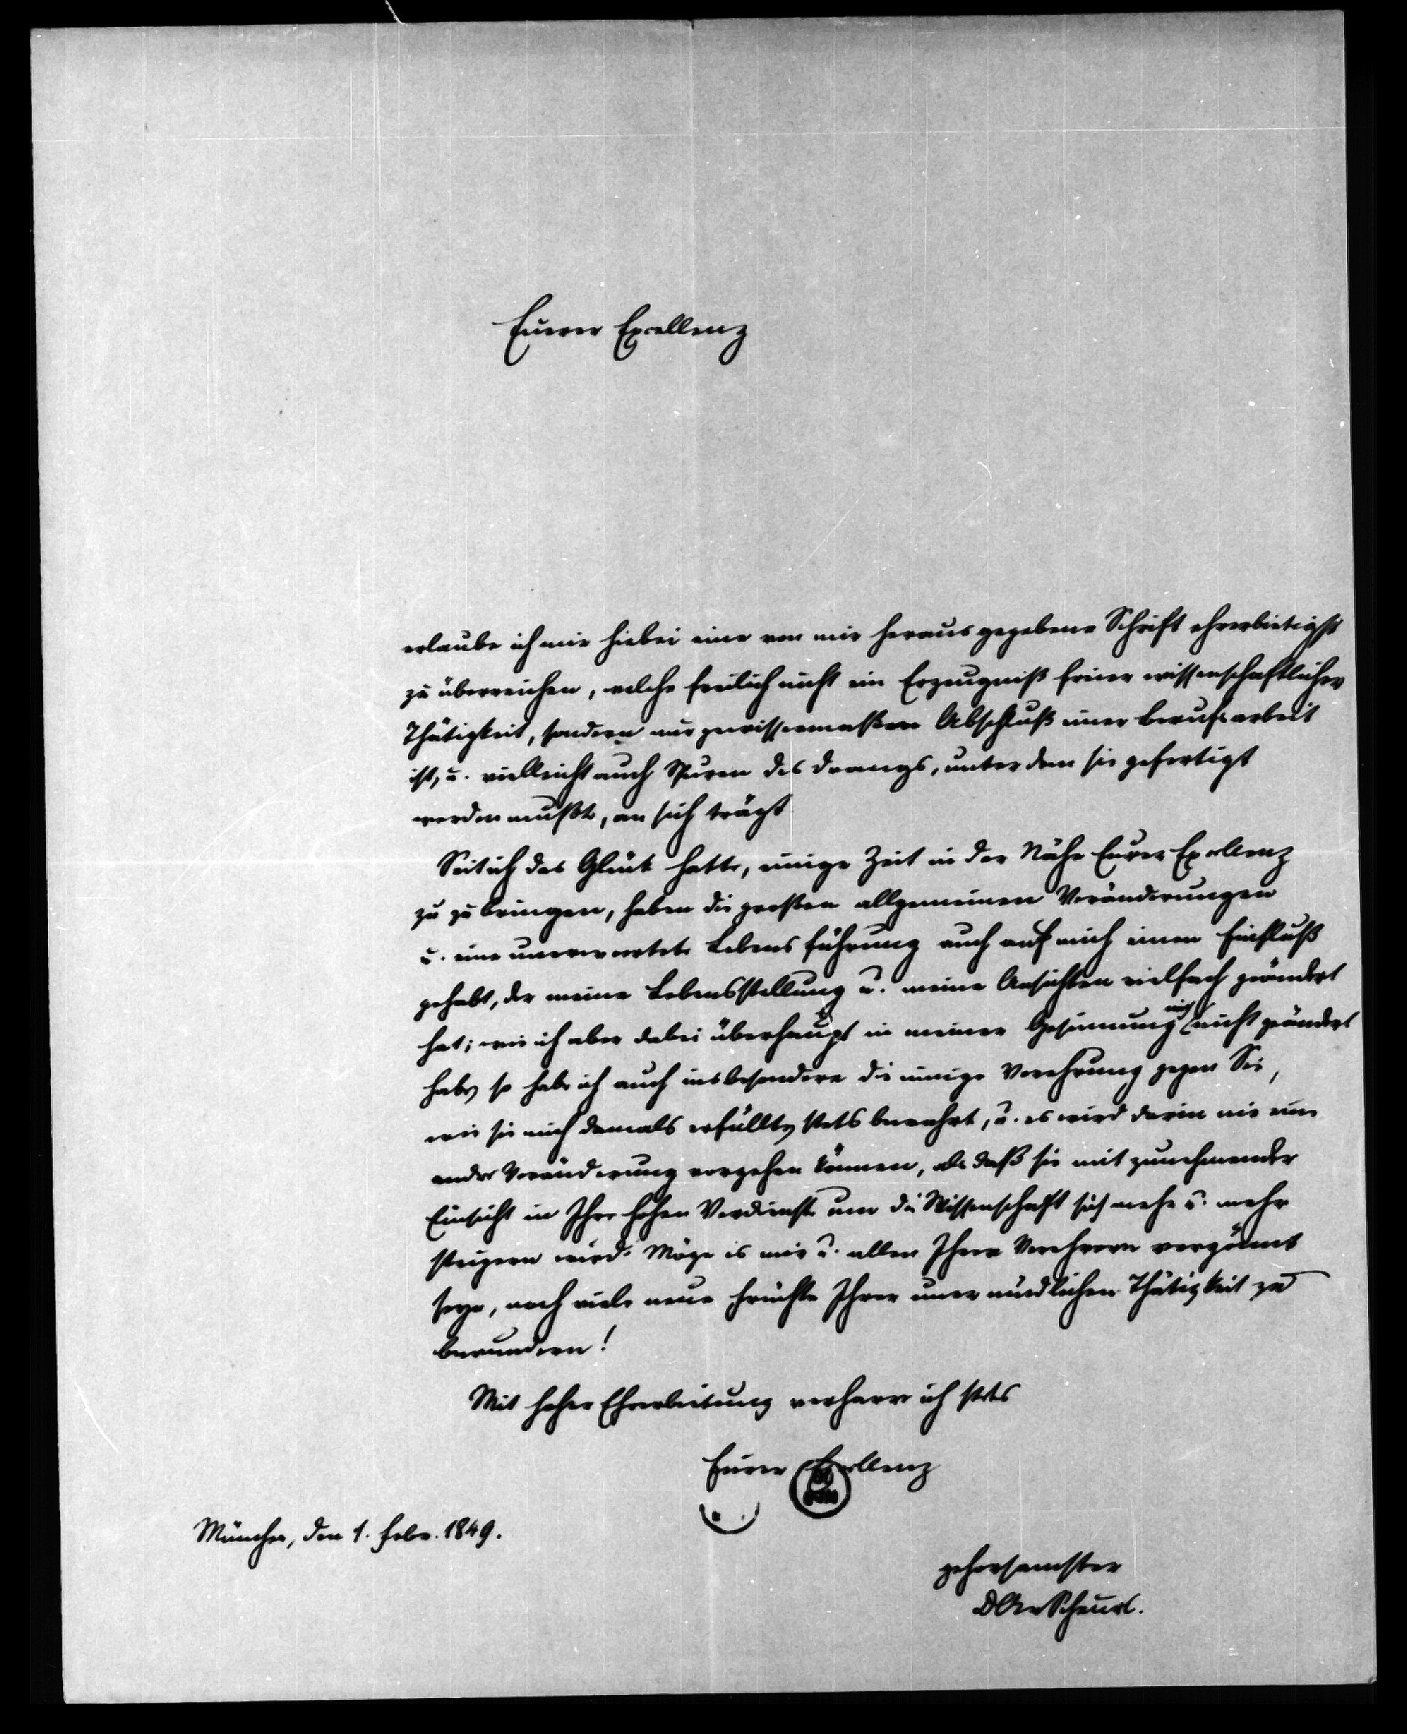 Euerer Excellenz
erlaube ich mir hiebei eine von mir herausgegebene Schrift ehrerbietigst
zu überreichen, welche freilich nicht ein Erzeugniß freier wissenschaftlicher
Thätigkeit, sondern nur gewissermaßen Abschluß einer Berufsarbeit
ist, u. vielleicht auch Spuren des Drangs, unter dem sie gefertigt
werden mußte, an sich trägt
Seit ich das Glück hatte, einige Zeit in der Nähe Eurer Excellenz
zu zu bringen, haben die großen allgemeinen Veränderungen
u. eine unerwartete Lebensführung auch auf mich einen Einfluß
gehabt, der meine Lebensstellung u. meine Ansichten vielfach geändert
hat; wie ich aber dabei überhaupt in meiner Gesinnung mich nicht geändert
habe, so habe ich auch insbesondere die innige Verehrung gegen Sie,
wie sie mich damals erfüllte, stets bewahrt, u. es wird darin nie eine
andre Veränderung vorgehen können, als daß sie mit zunehmender
Einsicht in Ihre hohen Verdienste um die Wissenschaft sich mehr u. mehr
steigern wird. Möge es mir u. allen Ihren Verehrern vergönnt
seyn, noch viele neue Früchte Ihrer unermüdlichen Thätigkeit zu
bewundern!
Mit hoher Ehrerbietung verharre ich stets
Eurer Excellenz
München, den 1. Febr. 1849.
gehorsamster
Scheurl.